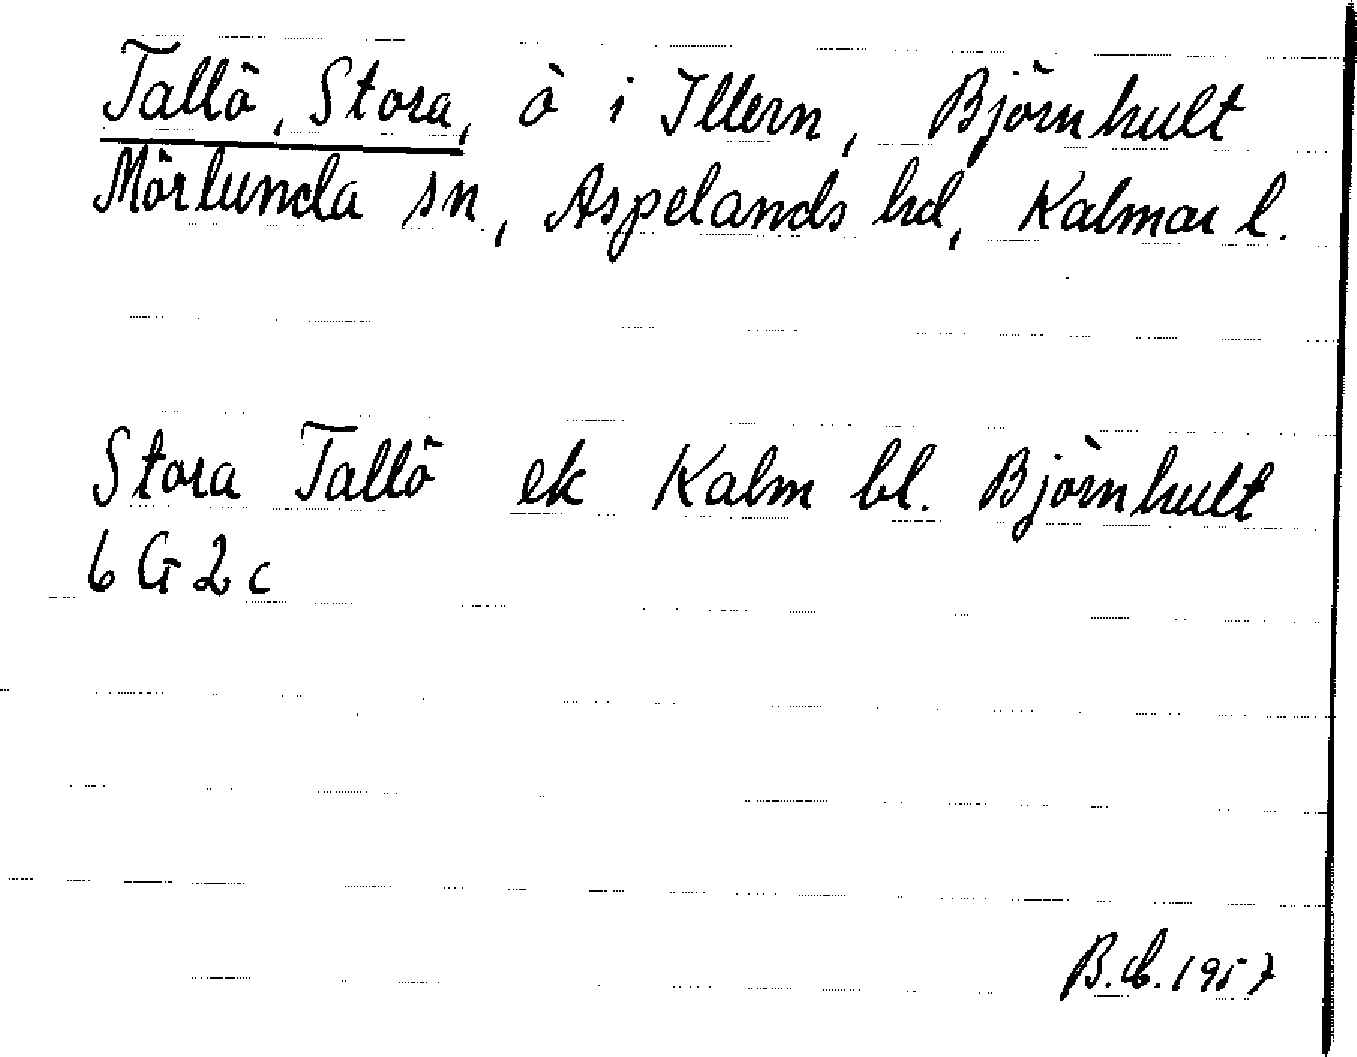 Tallö, Stora, ö i Illern, Björnhult
Mörlunda sn, Aspelands hd, Kalmar l.
Stora Tallö ek Kalm bl. Björnhult
6 G 2 c
1957